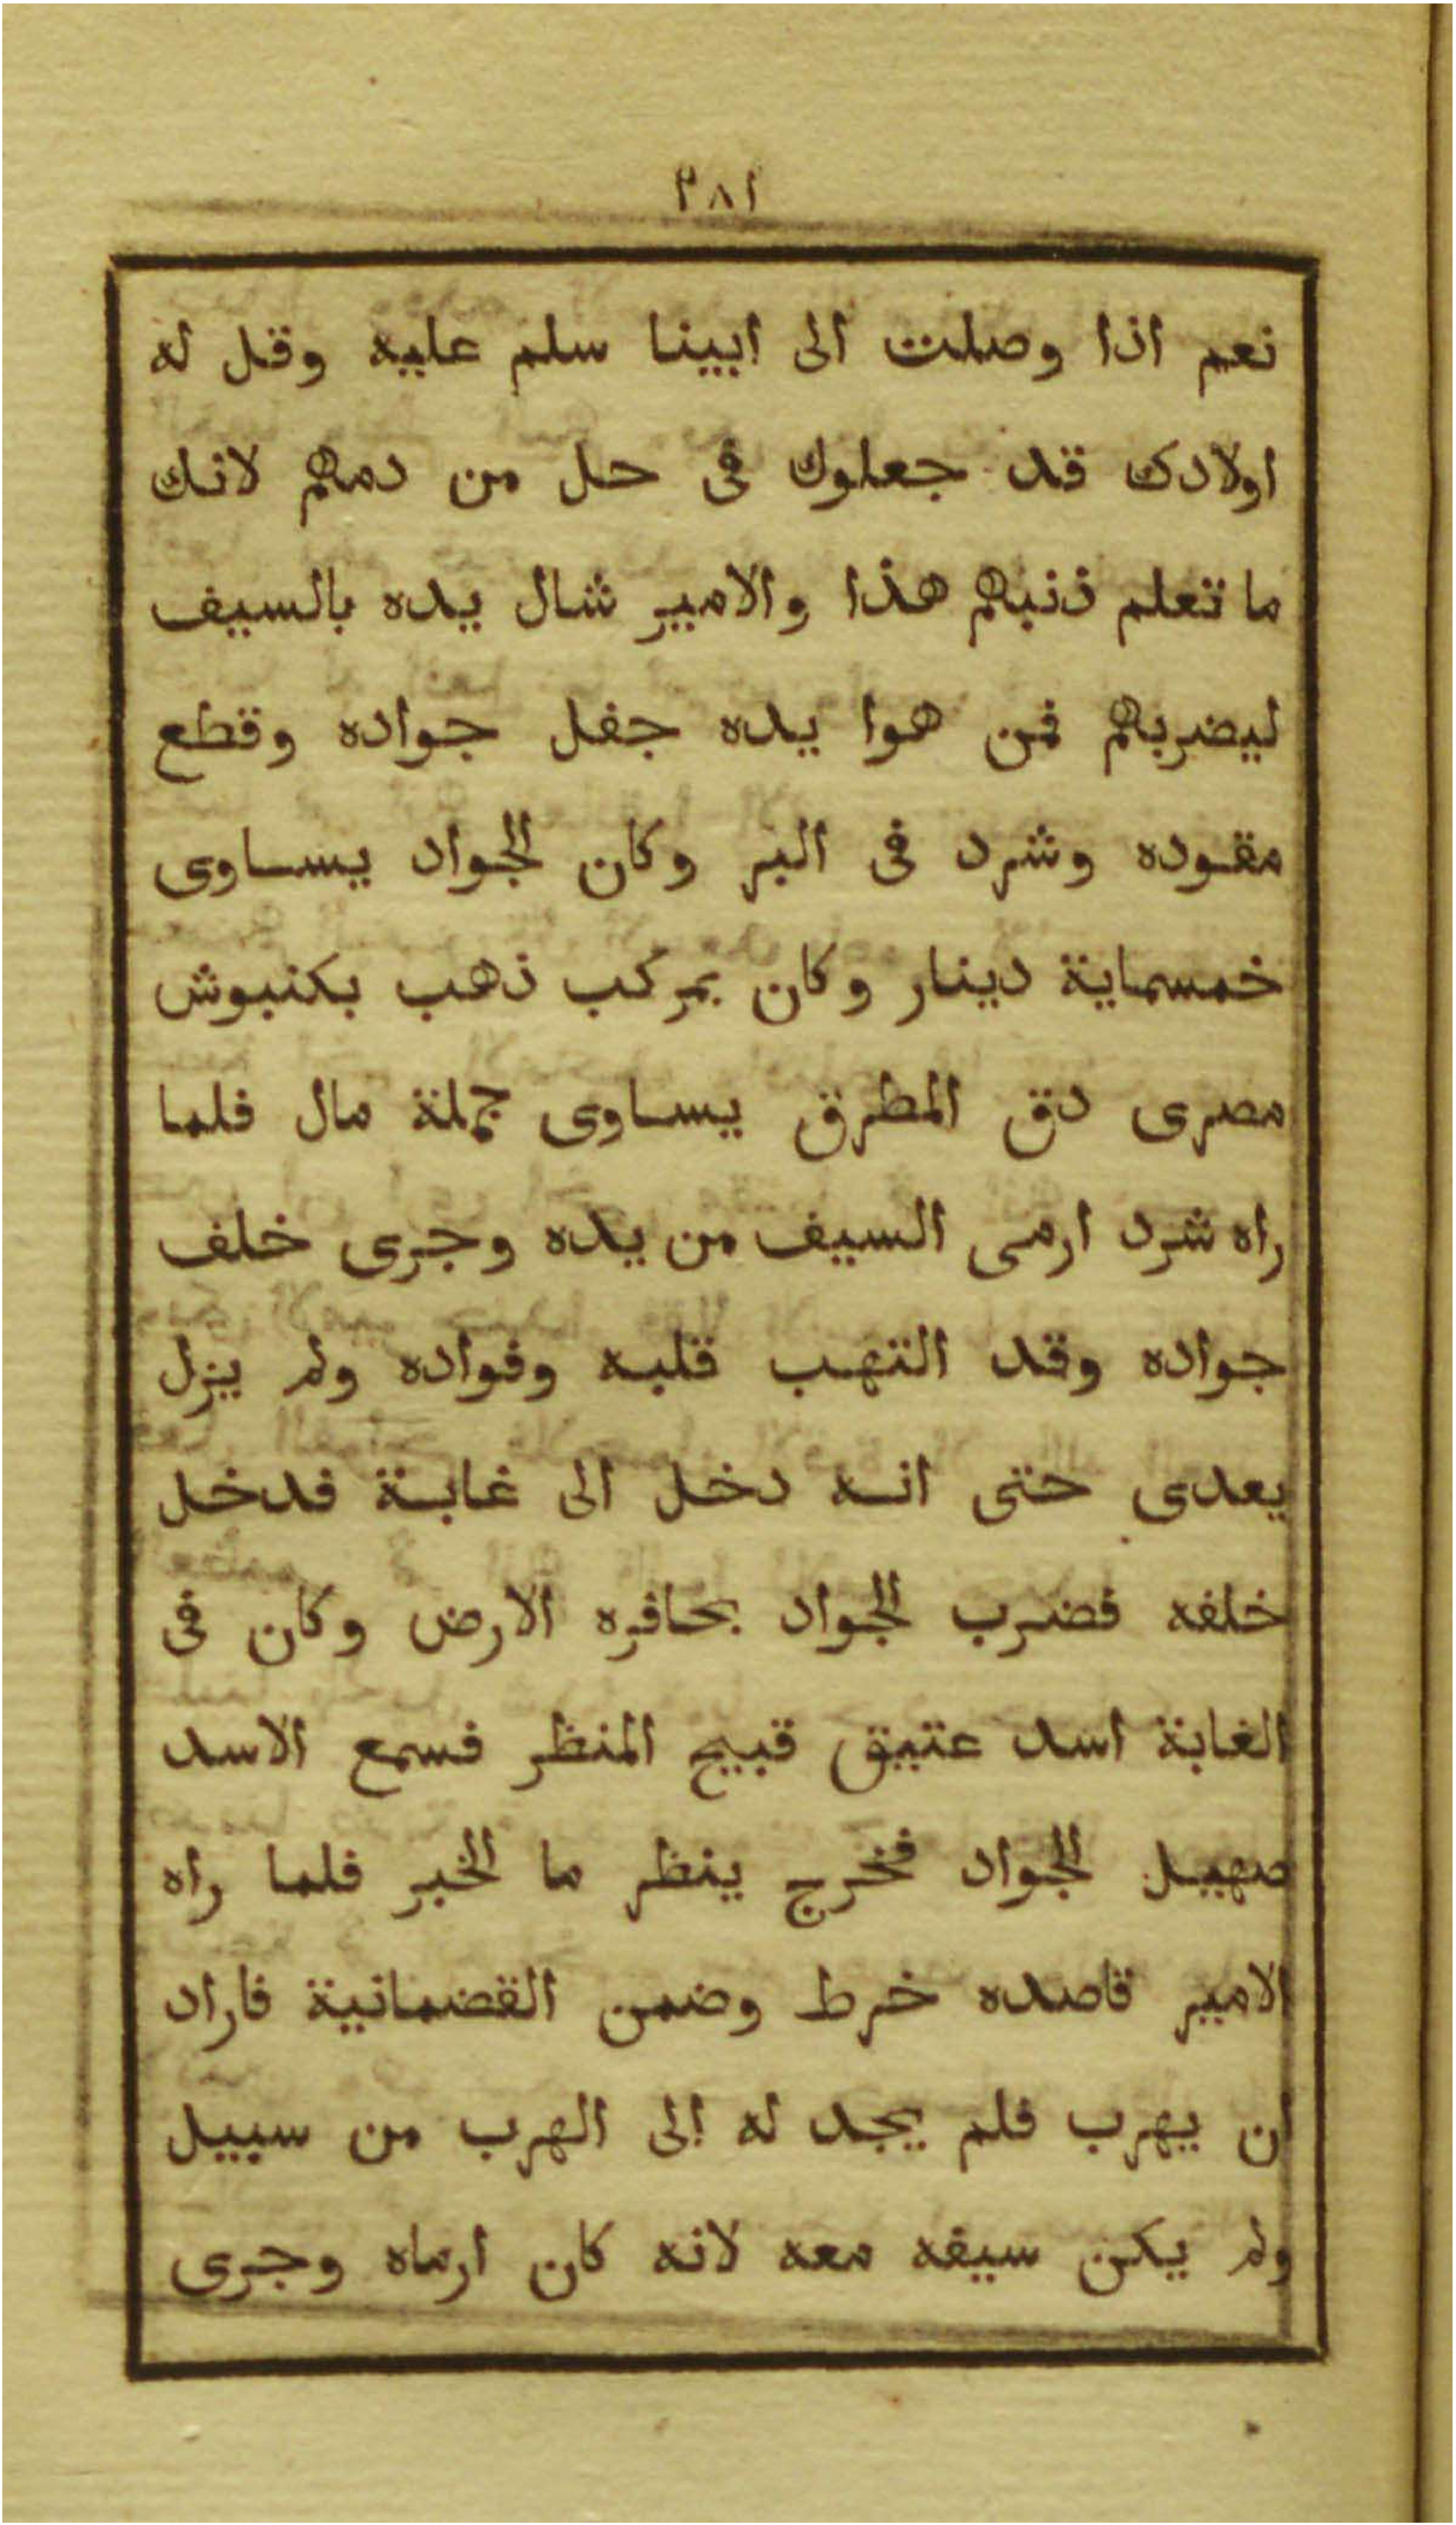 ٢٨١
نعم اذا وصلت الى ابينا سلم عليه وقل له
اولادك قد جعلوك فى حل من دمهم لانك
ما تعلم ذنبهم هذا والامير شال يده بالسيف
ليضربهم فمن هوا يده جفل جواده وقطع
مقوده وشرد فى البر وكان الجواد يساوى
خمسماية دينار وكان بمركب ذهب بكنبوش
مصرى دق المطرق يساوى جملة مال فلما
راه شرد ارمى السيف من يده وجرى خلف
جواده وقد التهب قلبه وفواده ولم يزل
يعدى حتى انه دخل الى غابة فدخل
خلفه فضرب الجواد بحافره الارض وكان فى
الغابة اسد عتيق قبيح المنظر فسمع الاسد
صهيل الجواد فخرج ينظر ما الخبر فلما راه
الامير قاصده خرط وضمن القضمانية فاراد
ان يهرب فلم يجد له الى الهرب من سبيل
ولم يكن سيفه معه لانه كان ارماه وجرى